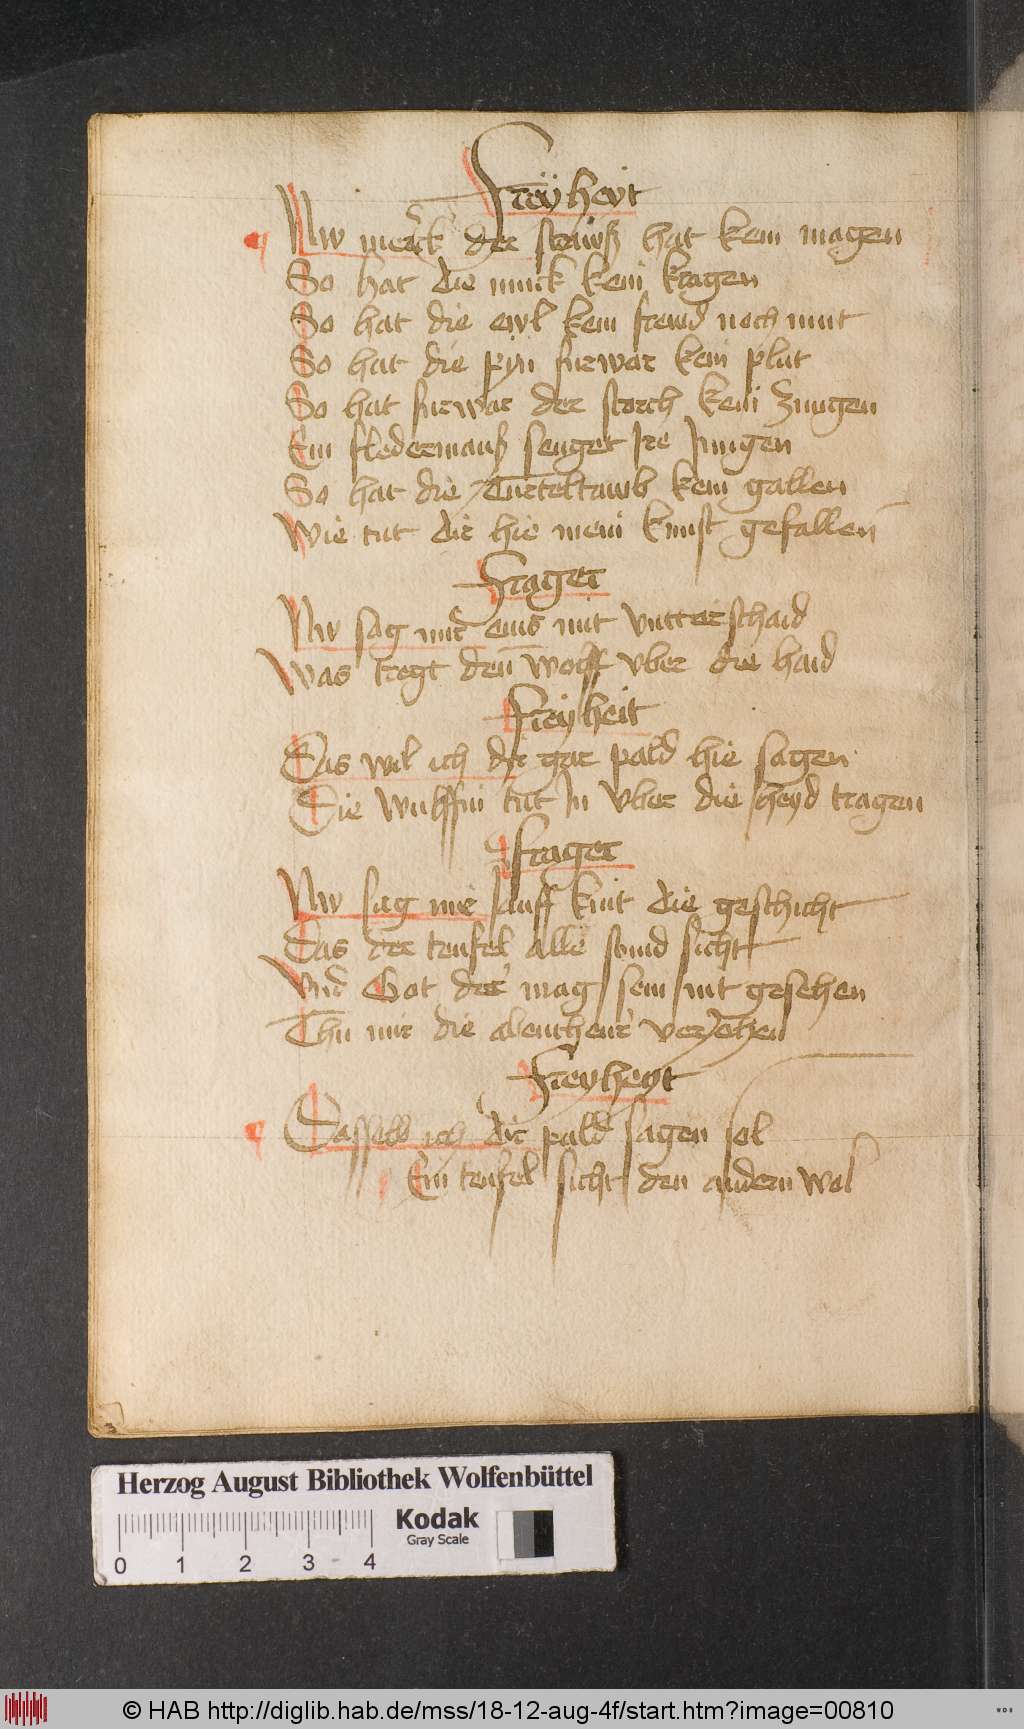 Freÿheyt
Nw merck der strawß hat kein magen
So hat die muck kein kragen
So hat die ewl kein frewd noch mut
So hat die pyn furwar kein plut
So hat furwar der storch kein zungen
Ein fledermauß seuget Ire Jungen
So hat die Turteltawb kein gallen
Wie tut dir hie mein kunst gefallen
Frager
Nw sag mir eins mit vntterschaid
Was tregt den wolff vber die haid
Freÿheit
Das wil ich dir gar pald hie sagen
Die wulffin tut In vber die heyd tragen
frager
Nw sag mir sanff knit die geschicht
Das der teufel alle stund sicht
Vnd Got der mag sein nit gesehen
Thu mir die abentheur verJehen
Freyheyt
Dasselb ich dir pald sagen sol
Ein teufel sicht den andern wol
Herzog August Bibliothek Wolfenbüttel
Kodak
Gray Scale
0 1 2 3 4
© HAB http://diglib.hab.de/mss/18-12-aug-4f/start.htm?image=00810